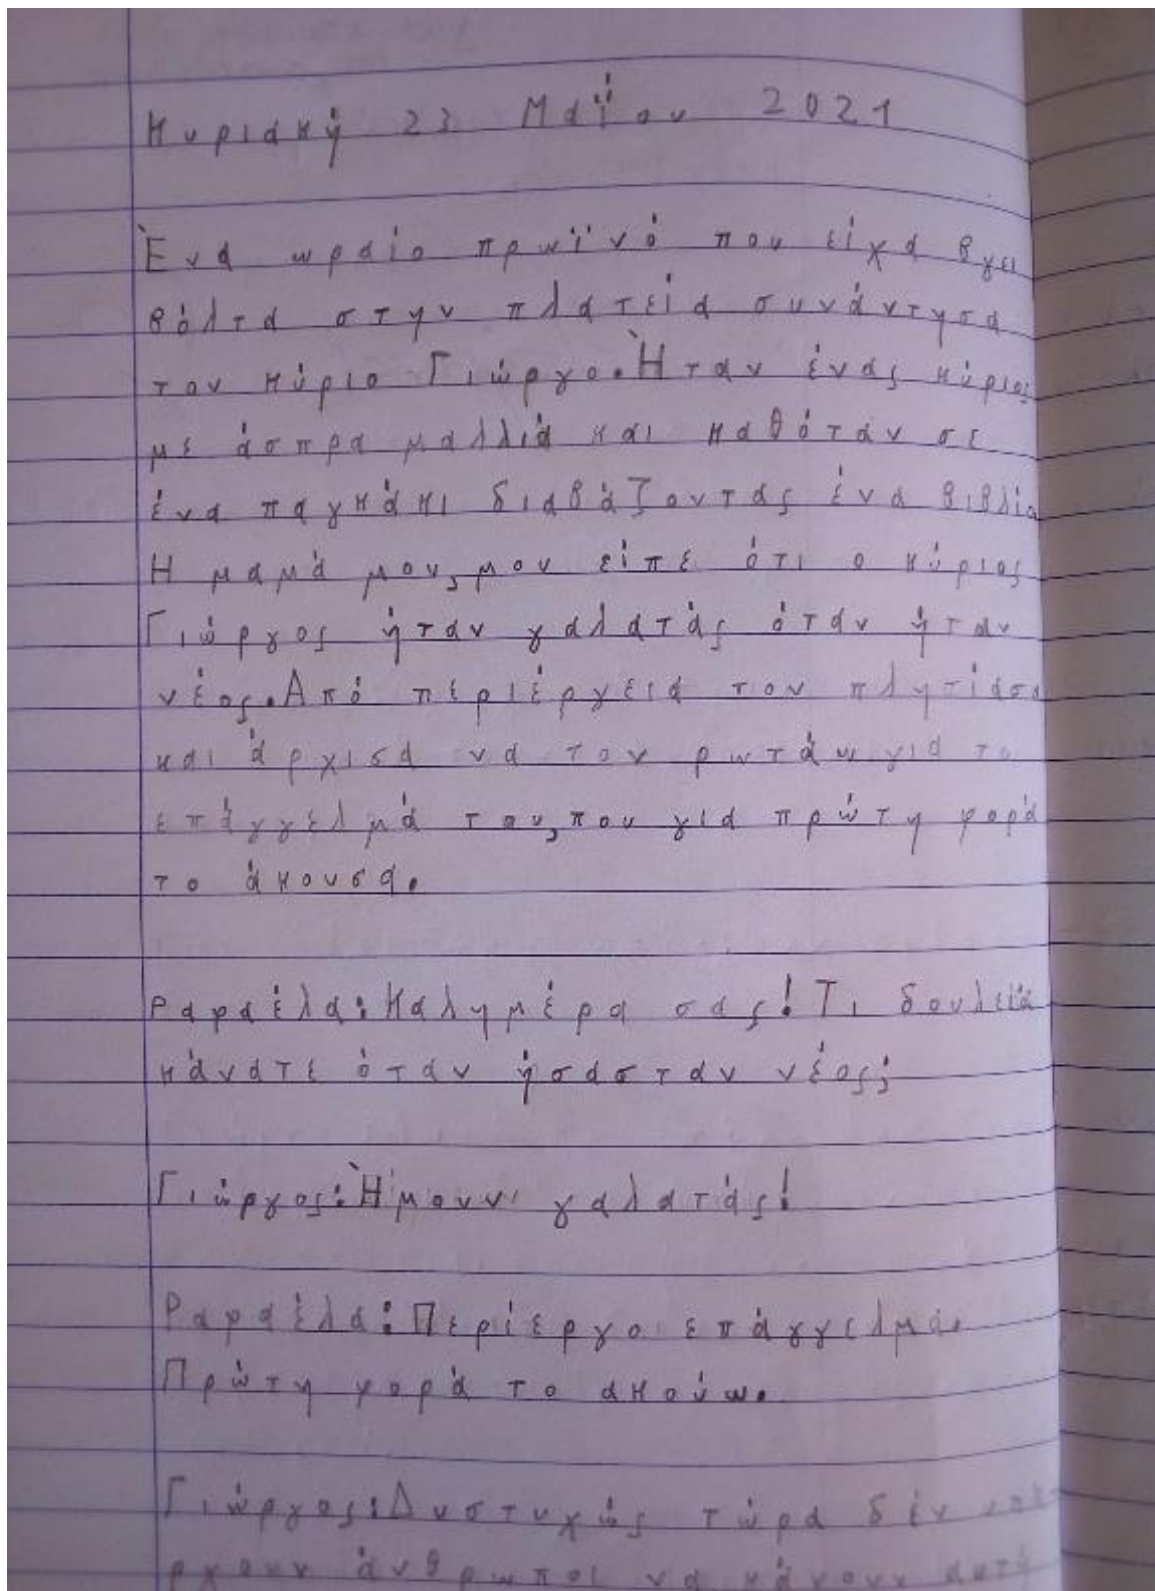 Κυριακή 23 Μάΐου 2021
Ένα ωραίο πρωϊνό που είχα βγει
βόλτα στην πλατεία συνάντησα
τον κύριο Γιώργο. Ήταν ένας κύριος
με άσπρα μαλλιά και καθόταν σε
ένα παγκάκι διαβάζοντας ένα βιβλίο
Η μαμά μου, μου είπε ότι ο κύριος
Γιώργος ήταν γαλατάς όταν ήταν
νέος. Από περιέργεια τον πλησίασα
και άρχισα να τον ρωτάω για το
επάγγελμά του, που για πρώτη φορά
το άκουσα.
Ραφαέλα: Καλημέρα σας! Τι δουλειά
κάνατε όταν ήσασταν νέος;
Γιώργος: Ήμουν γαλατάς!
Ραφαέλα: Περίεργο επάγγελμα.
Πρώτη φορά το ακούω.
Γιώργος: Δυστυχώς τώρα δεν υπά
ρχουν άνθρωποι να κάνουν αυτή